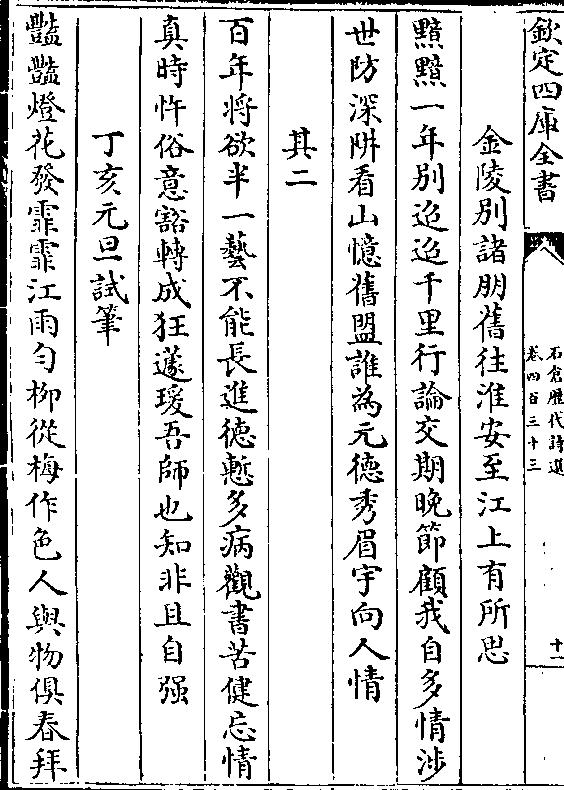 欽定四庫全書
石倉歷代詩選
卷四百三十三
十一
金陵別諸朋舊往淮安至江上有所思
黯黯一年別迢迢千里行論交期晚節顧我自多情涉
世防深阱看山憶舊盟誰為元德秀眉宇向人情
其二
百年将欲半一藝不能長進德慙多病觀書苦健忘情
真時忤俗意豁轉成狂蘧瑗吾師也知非且自强
丁亥元旦試筆
豔豔燈花發霏霏江雨勻柳從梅作色人與物俱春拜